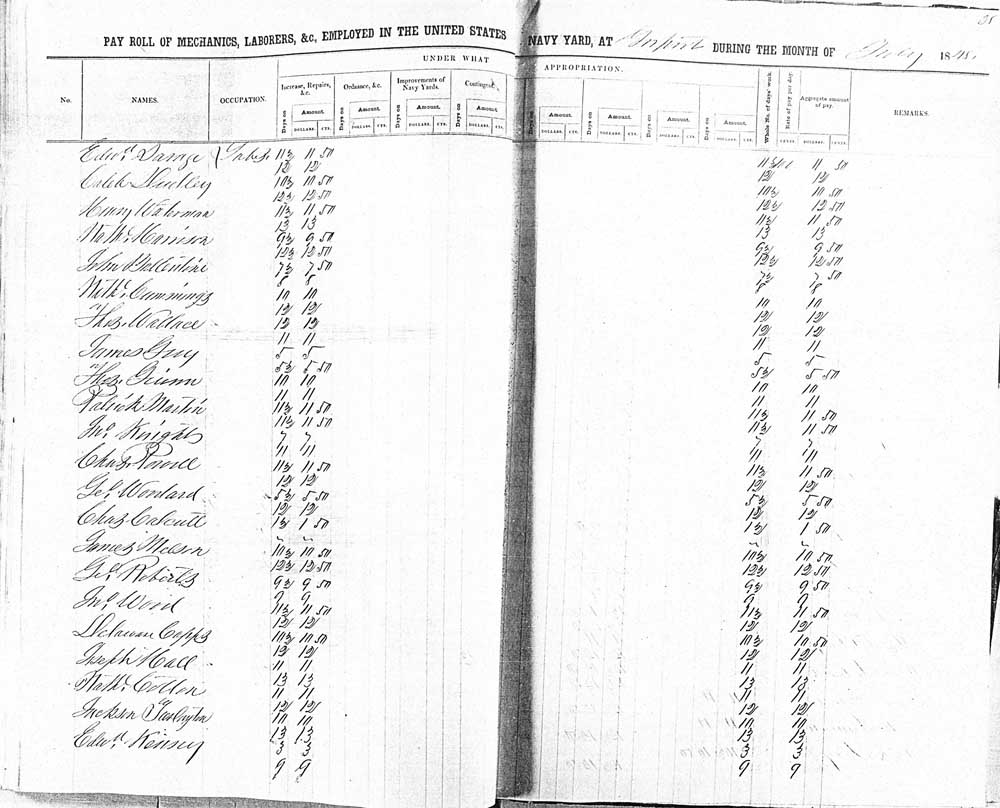 38
PAY ROLL OF MECHANICS, LABORERS, &c, EMPLOYED IN THE UNITED STATES NAVY YARD, AT Gosport DURING THE MONTH OF July 1848.
UNDER WHAT APPROPRIATION.
No. NAMES. OCCUPATION. Increase, Repairs, &c. Ordnance, &c. Improvements of Navy Yards. Contingent. Whole No. of days' work. Rate of pay per day. Aggregate amount of pay. REMARKS.
Days on Amount. Days on Amount. Days on Amount. Days on Amount. Days on Amount. Days on Amount. Days on Amount. Days on Amount.
DOLLARS. CTS. DOLLARS. CTS. DOLLARS. CTS. DOLLARS. CTS. DOLLARS. CTS. DOLLARS. CTS. DOLLARS. CTS. DOLLARS. CTS. DOLLARS. CENTS.
Edwd 11½ 11 50 11½ 11 50
12 12 12 12
Caleb 10½ 10 50 10½ 10 50
12½ 12 50 12½ 12 50
Henry Waterman 11½ 11 50 11½ 11 50
13 13 13 13
Nathl Harrison 9½ 9 50 9½ 9 50
12½ 12 50 12½ 12 50
John Bellentine 7½ 7 50 7½ 7 50
8 8 8 8
Nathl Cummings 10 10 10 10
12 12 12 12
Thos. Wallace 12 12 12 12
11 11 11 11
James Guy 5 5 5 5
5½ 5 50 5½ 5 50
Thos. Guinn 10 10 10 10
11 11 11 11
Patrick Martin 11½ 11 50 11½ 11 50
11½ 11 50 11½ 11 50
Jno Knight 7 7 7 7
11 11 11 11
Chas. 11½ 11 50 11½ 11 50
12 12 12 12
Geo Woodard 5½ 5 50 5½ 5 50
12 12 12 12
Chas Calcutt 1½ 1 50 1½ 1 50
James Melson 10½ 10 50 10½ 10 50
12½ 12 50 12½ 12 50
Geo Roberts 9½ 9 50 9½ 9 50
9 9 9 9
Jno Wood 11½ 11 50 11½ 11 50
12 12 12 12
Delawan Capps 10½ 10 50 10½ 10 50
12 12 12 12
Joseph Hall 11 11 11 11
13 13 13 13
Nathl Cotton 11 11 11 11
12 12 12 12
Jackson 10 10 10 10
13 13 13 13
Edwd Kinsey 3 3 3 3
9 9 9 9